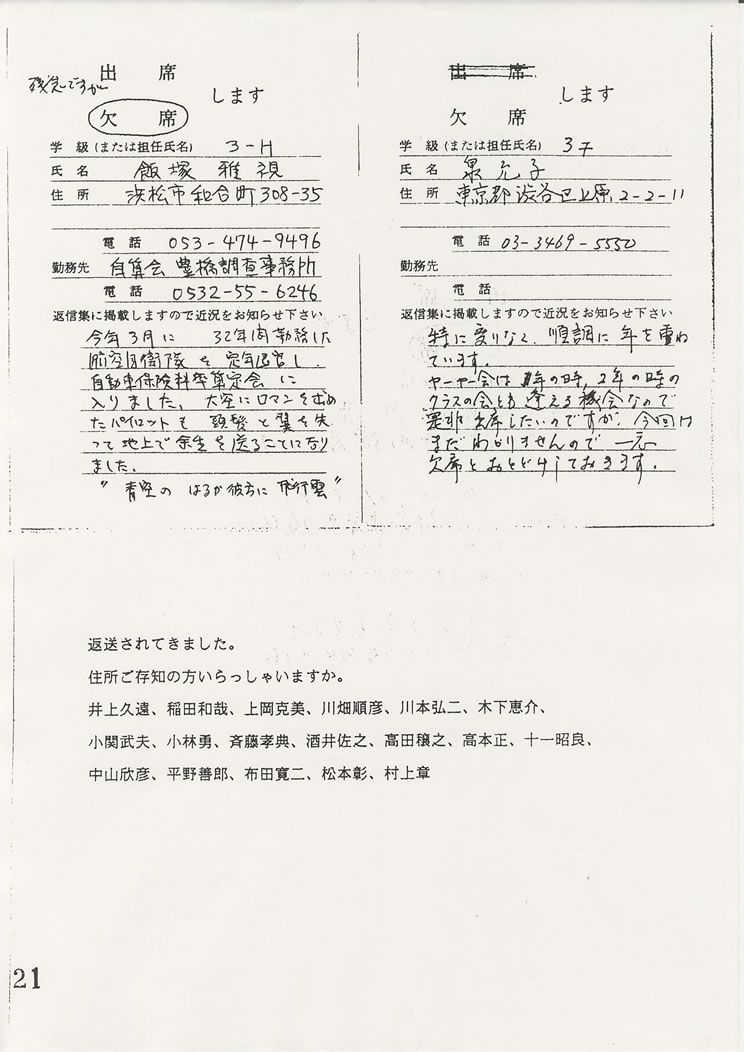 出席
残念ですが
欠席
します
学級(または担任氏名) 3-H
氏名 飯塚雅視
住所 浜松市和合町308-35
電話 053-474-9496
勤務先 自算会 豊橋調査事務所
電話 0532-55-6246
返信集に掲載しますので近況をお知らせ下さい
今年3月に 32年間勤務した
航空自衛隊を定年退官し、
自動車保険料率算定会に
入りました。大空にロマンを求め
たパイロットも 頭髪と翼を失
って地上で余生を送ることになり
ました。
"青空の はるか彼方に 飛行雲"
出席
します
欠席
学級(または担任氏名) 3
氏名 泉允子
住所 東京都渋谷区上原2-2-11
電話 03-3469-5550
勤務先
電話
返信集に掲載しますので近況をお知らせ下さい
特に変りなく、順調に年を重ね
ています。
ヤーヤー会は 年の時、2年の時の
クラスの会とも逢える機会なので
是非出席したいのですが、今回は
まだわかりませんので一応
欠席とおとどけしておきます。
返送されてきました。
住所ご存知の方いらっしゃいますか。
井上久遠、稲田和哉、上岡克美、川畑順彦、川本弘二、木下恵介、
小関武夫、小林勇、斉藤孝典、酒井佐之、高田穣之、高本正、十一昭良、
中山欣彦、平野善郎、布田寛二、松本彰、村上章
21